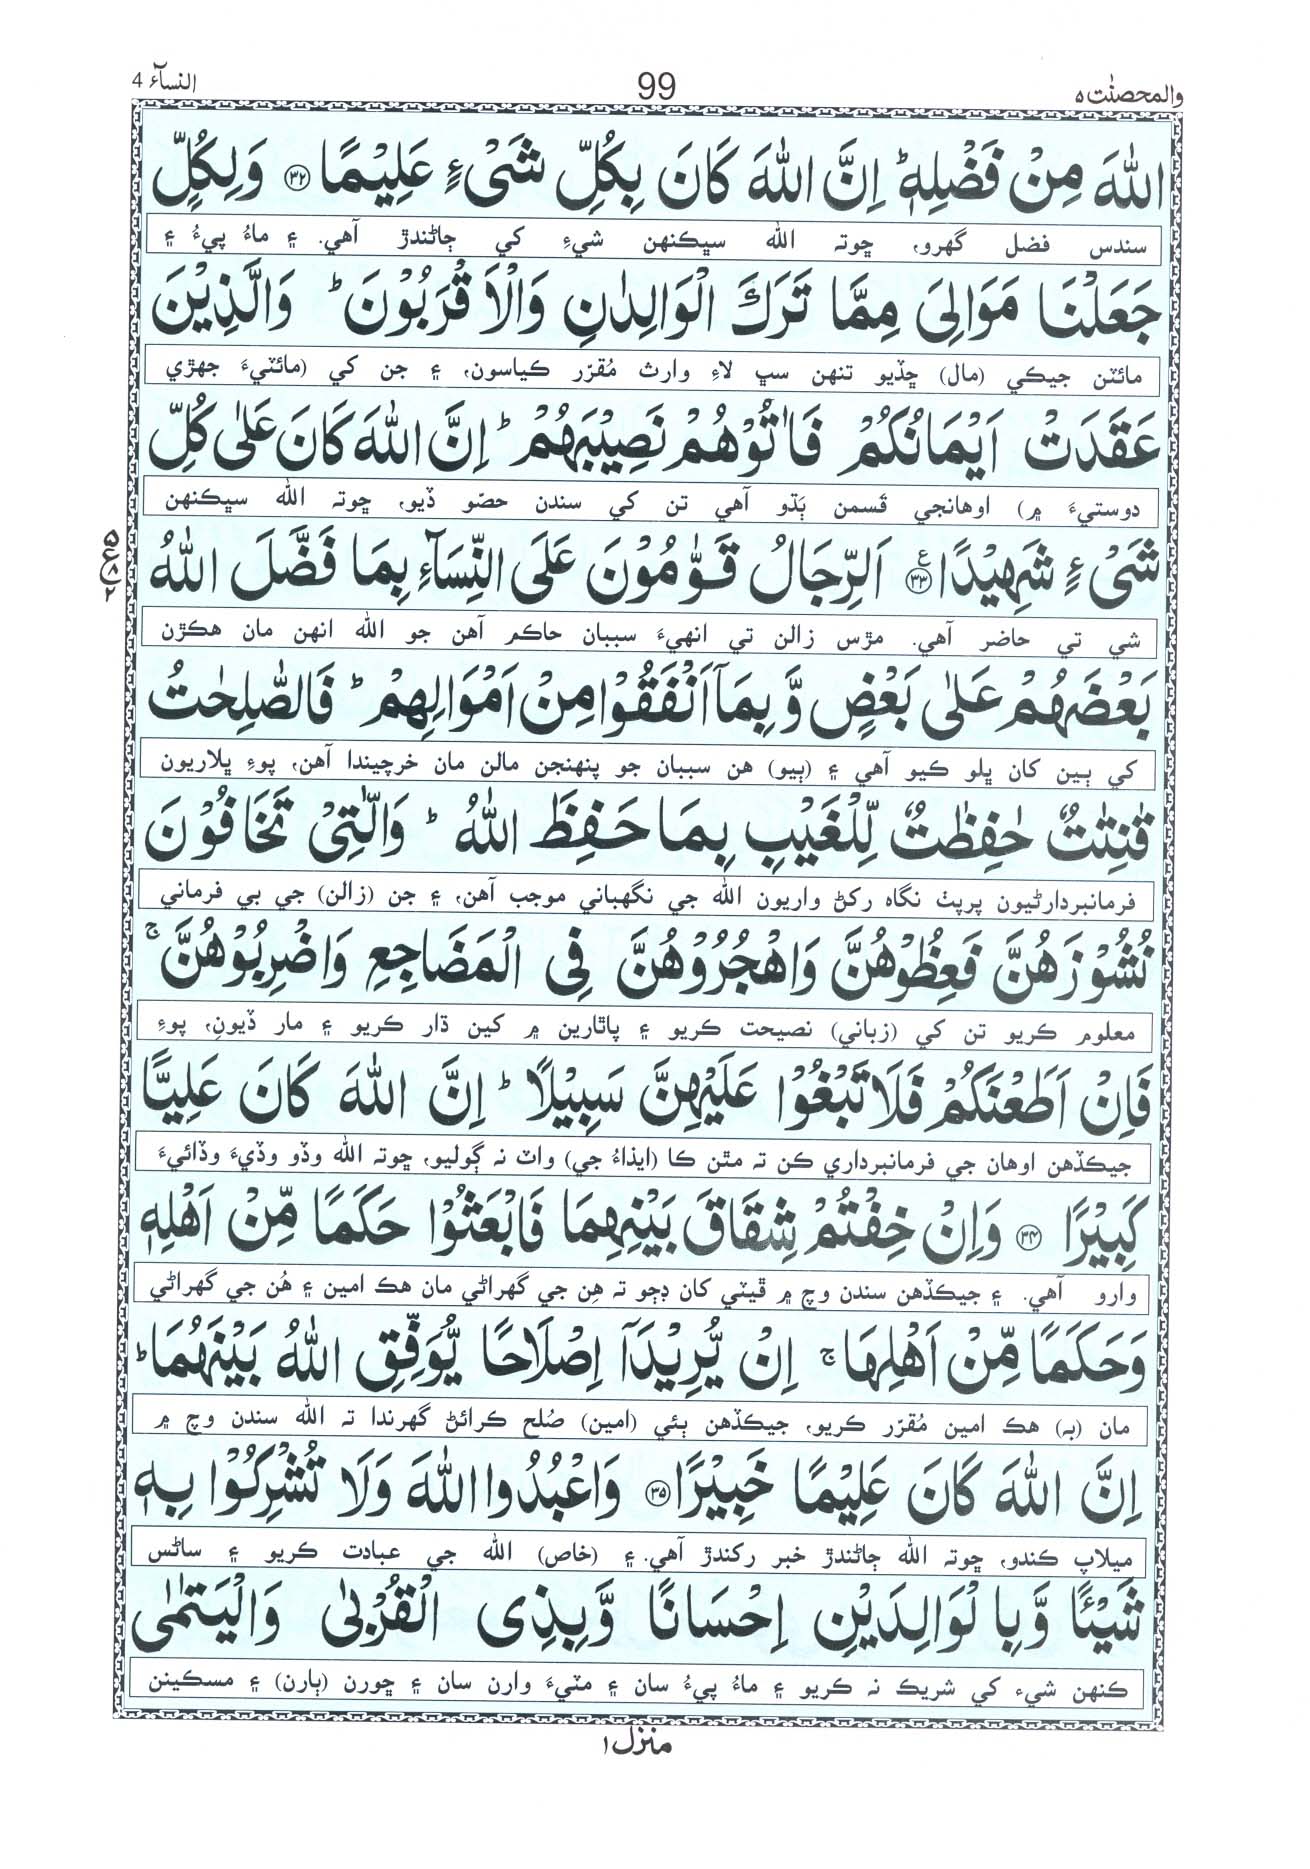 والمحصنٰت ٥
99
النسآء 4
اللّٰهَ مِنْ فَضْلِهٖ ؕ اِنَّ اللّٰهَ كَانَ بِكُلِّ شَیْءٍ عَلِیْمًا ﴿۳۲﴾ وَلِكُلٍّ
سندس فضل گهرو، ڇوته الله سڀڪنهن شيءِ کي ڄاڻندڙ آهي. ۽ ماءُ پيءُ ۽
جَعَلْنَا مَوَالِیَ مِمَّا تَرَكَ الْوَالِدٰنِ وَالْاَقْرَبُوْنَ ؕ وَالَّذِیْنَ
مائٽن جيڪي (مال) ڇڏيو تنهن سڀ لاءِ وارث مُقرّر ڪياسون، ۽ جن کي (مائٽيءَ جهڙي
عَقَدَتْ اَیْمَانُكُمْ فَاٰتُوْهُمْ نَصِیْبَهُمْ ؕ اِنَّ اللّٰهَ كَانَ عَلٰی كُلِّ
دوستيءَ ۾) اوهانجي قَسمن ٻَڌو آهي تن کي سندن حصّو ڏيو، ڇوته الله سڀڪنهن
شَیْءٍ شَهِیْدًا ﴿۳۳﴾ ع اَلرِّجَالُ قَوّٰمُوْنَ عَلَی النِّسَآءِ بِمَا فَضَّلَ اللّٰهُ
شي تي حاضر آهي. مڙس زالن تي انهيءَ سببان حاڪم آهن جو الله انهن مان هڪڙن
بَعْضَهُمْ عَلٰی بَعْضٍ وَّبِمَاۤ اَنْفَقُوْا مِنْ اَمْوَالِهِمْ ؕ فَالصّٰلِحٰتُ
کي ٻين کان ڀلو ڪيو آهي ۽ (ٻيو) هن سببان جو پنهنجن مالن مان خرچيندا آهن، پوءِ ڀلاريون
قٰنِتٰتٌ حٰفِظٰتٌ لِّلْغَیْبِ بِمَا حَفِظَ اللّٰهُ ؕ وَالّٰتِیْ تَخَافُوْنَ
فرمانبردارڻيون پرپٺ نگاه رکڻ واريون الله جي نگهباني موجب آهن، ۽ جن (زالن) جي بي فرماني
نُشُوْزَهُنَّ فَعِظُوْهُنَّ وَاهْجُرُوْهُنَّ فِی الْمَضَاجِعِ وَاضْرِبُوْهُنَّ ۚ
معلوم ڪريو تن کي (زباني) نصيحت ڪريو ۽ پاٿارين ۾ کين ڌار ڪريو ۽ مار ڏيونِ، پوءِ
فَاِنْ اَطَعْنَكُمْ فَلَا تَبْغُوْا عَلَیْهِنَّ سَبِیْلًا ؕ اِنَّ اللّٰهَ كَانَ عَلِیًّا
جيڪڏهن اوهان جي فرمانبرداري ڪن ته مٿن ڪا (ايذاءُ جي) واٽ نه ڳوليو، ڇوته الله وڏو وڏيءَ وڏائيءَ
كَبِیْرًا ﴿۳۴﴾ وَاِنْ خِفْتُمْ شِقَاقَ بَیْنِهِمَا فَابْعَثُوْا حَكَمًا مِّنْ اَهْلِهٖ
وارو آهي. ۽ جيڪڏهن سندن وچ ۾ ڦيٽي کان ڊڄو ته هِن جي گهراڻي مان هڪ امين ۽ هُن جي گهراڻي
وَحَكَمًا مِّنْ اَهْلِهَا ۚ اِنْ یُّرِیْدَاۤ اِصْلَاحًا یُّوَفِّقِ اللّٰهُ بَیْنَهُمَا ؕ
مان (به) هڪ امين مُقرّر ڪريو، جيڪڏهن ٻئي (امين) صُلح ڪرائڻ گهرندا ته الله سندن وچ ۾
اِنَّ اللّٰهَ كَانَ عَلِیْمًا خَبِیْرًا ﴿۳۵﴾ وَاعْبُدُوا اللّٰهَ وَلَا تُشْرِكُوْا بِهٖ
ميلاپ ڪندو، ڇوته الله ڄاڻندڙ خبر رکندڙ آهي. ۽ (خاص) الله جي عبادت ڪريو ۽ ساڻس
شَیْـًٔا وَّبِالْوَالِدَیْنِ اِحْسَانًا وَّبِذِی الْقُرْبٰی وَالْیَتٰمٰی
ڪنهن شيء کي شريڪ نه ڪريو ۽ ماءُ پيءُ سان ۽ مٽيءَ وارن سان ۽ ڇورن (ٻارن) ۽ مسڪينن
منزل ۱